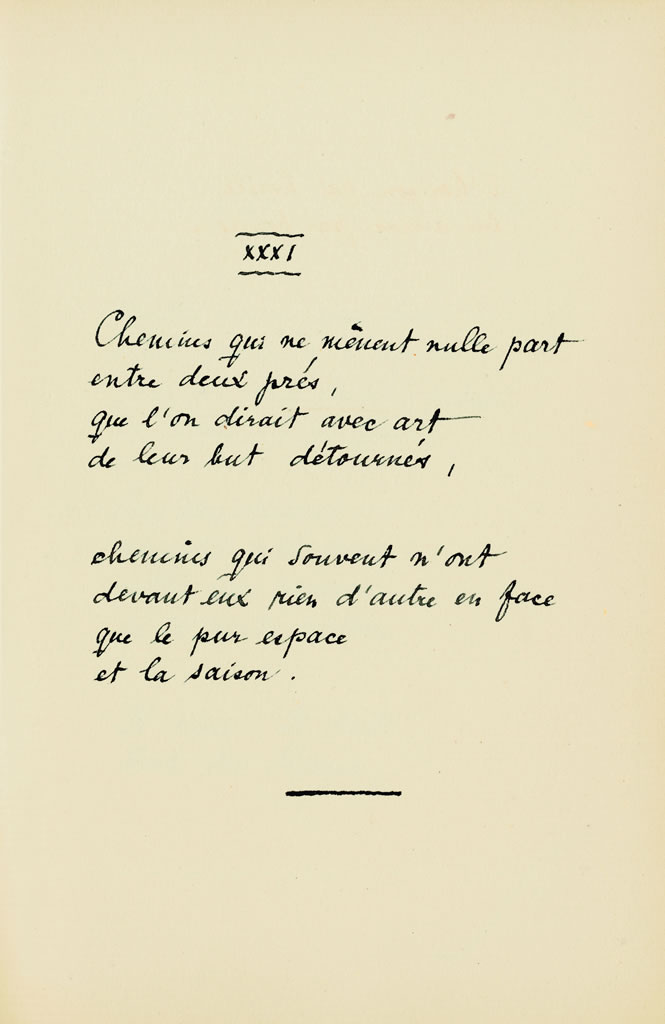 XXXI
Chemins qui ne mènent nulle part
entre deux prés,
que l'on dirait avec art
de leur but détournés,
chemins qui souvent n'ont
devant eux rien d'autre en face
que le pur espace
et la saison.